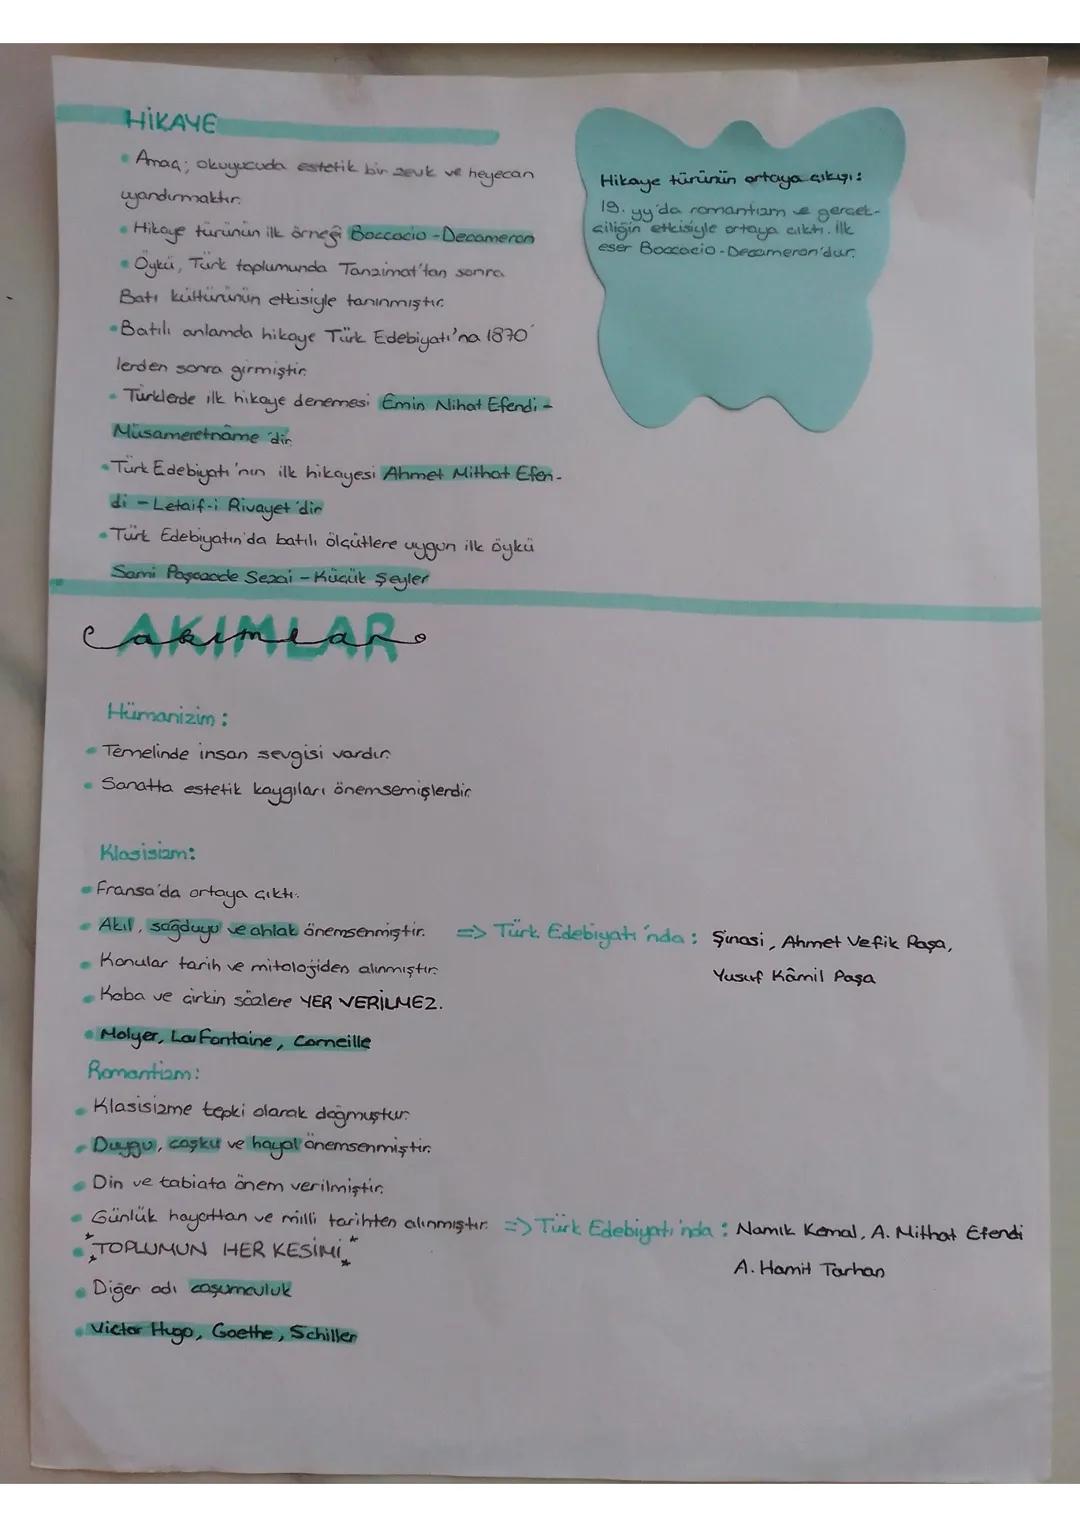 HİKAYE
• Amaç; okuyucuda estetik bir zevk ve heyecan
uyandırmaktır.
• Hikaye türünün ilk örneği Boccocio - Decameron
• Öykü, Türk toplumunda Tanzimat'tan sonra
Batı kültürünün etkisiyle tanınmıştır.
• Batılı anlamda hikaye Türk Edebiyatı'na 1870'
lerden sonra girmiştir.
• Türklerde ilk hikaye denemesi Emin Nihat Efendi -
Müsameretnâme'dir.
• Türk Edebiyatı'nın ilk hikayesi Ahmet Mithat Efen-
di - Letaif-i Rivayet'dir
• Türk Edebiyatın'da batılı ölçütlere uygun ilk öykü
Sami Paşazade Sezai - Küçük Şeyler
Hikaye türünün ortaya çıkışı:
19. yy'da romantizm ve gerçek-
çiliğin etkisiyle ortaya çıktı. İlk
eser Boccocio - Decameron'dur.
AKIMLAR
akımlar
Hümanizim:
• Temelinde insan sevgisi vardır.
• Sanatta estetik kaygıları önemsemişlerdir.
Klasisizm:
• Fransa'da ortaya çıktı.
• Akıl, sağduyu ve ahlak önemsenmiştir. => Türk Edebiyatı'nda: Şinasi, Ahmet Vefik Paşa,
Yusuf Kâmil Paşa
• Konular tarih ve mitolojiden alınmıştır.
• Kaba ve çirkin sözlere YER VERİLMEZ.
• Molyer, La Fontaine, Corneille
Romantizm:
• Klasisizme tepki olarak doğmuştur.
• Duygu, coşku ve hayal önemsenmiştir.
• Din ve tabiata önem verilmiştir.
• Günlük hayattan ve milli tarihten alınmıştır. => Türk Edebiyatı'nda: Namık Kemal, A. Mithat Efendi
A. Hamit Tarhan
• TOPLUMUN HER KESİMİ
• Diğer adı coşumculuk
• Victor Hugo, Goethe, Schiller